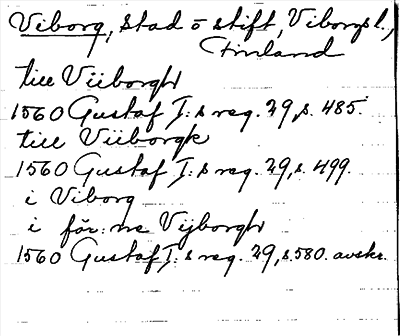 Viborg, stad o stift, Viborgs l.,
Finland
till Viiborgh
1560 Gustaf I:s reg. 29, s. 485.
till Viiborgk
1560 Gustaf I:s reg. 29, s. 499.
i Viborg
i för:ne Vijborgh
1560 Gustaf I:s reg. 29, s. 580. avskr.